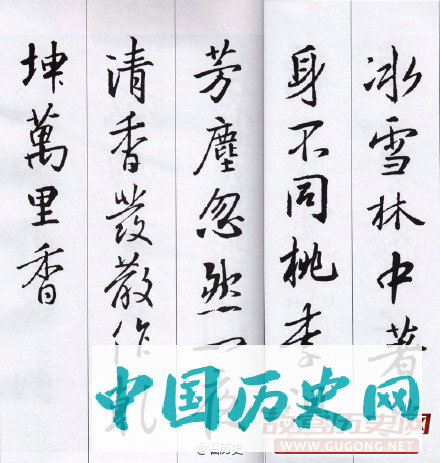 冰雪林中著
身不同桃李
芳塵忽然一
清香發散作
坤萬里香
中国历史网
WWW.GUGONG.NET